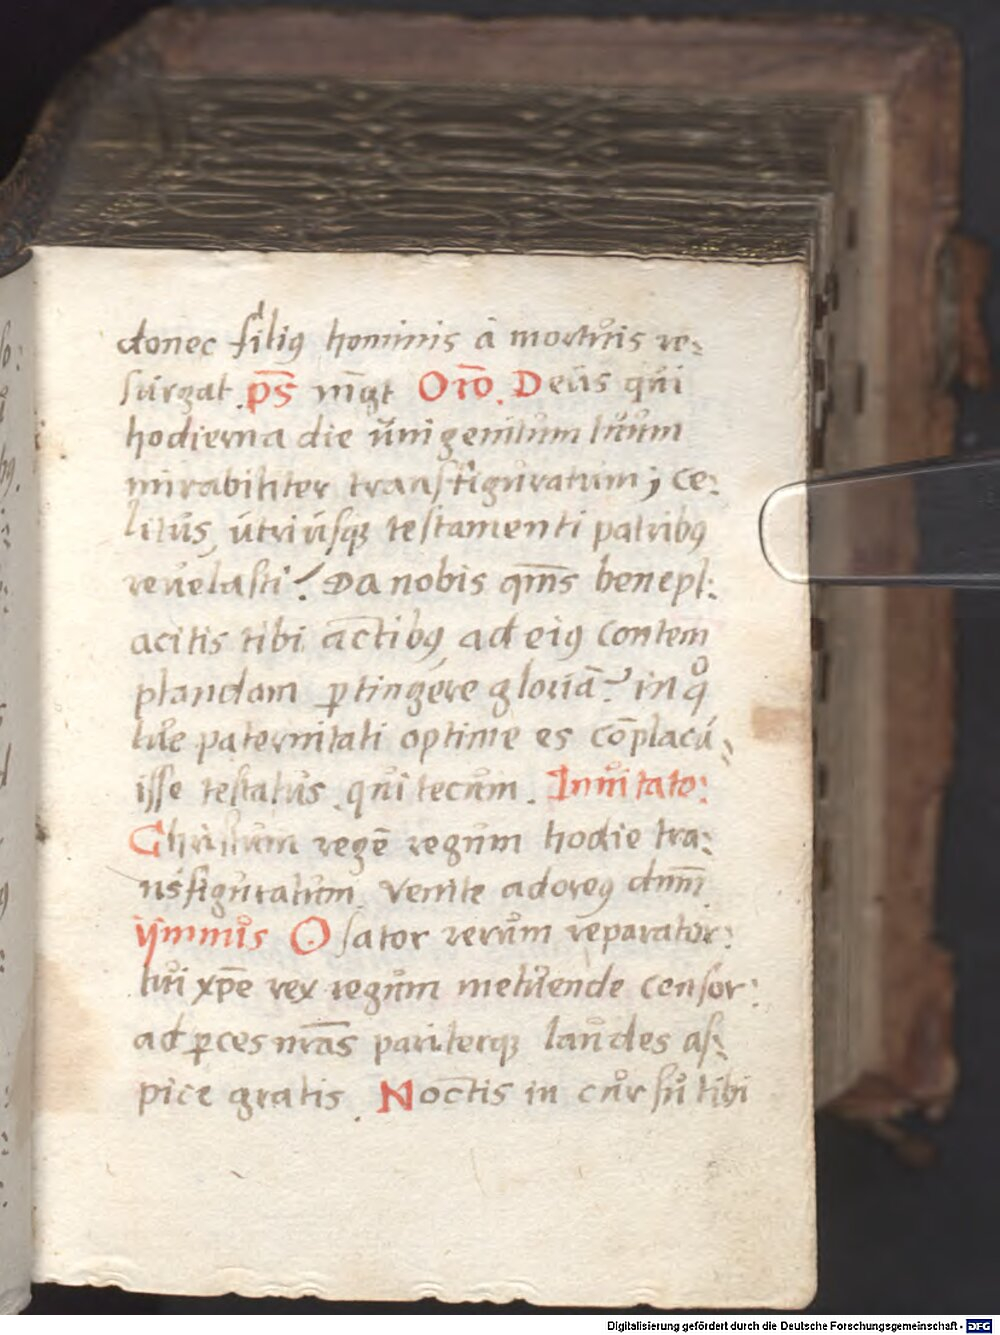 donec filiꝯ hominis á mortuis re-
surgat. p̄s m̄gt Oro̅. Deus qui
hodierna die unigenitum tuum
mirabiliter transfiguratum; ce-
litus, utriusqꝫ testamenti patribꝯ
revelasti / Da nobis qm̄s benepl-
acitis tibi actibꝯ ad eiꝯ contem
plandam ꝑtingere gloriā in qͦ
tue paternitati optime es cōplacu-
isse testatus. qui tecum. Inuitato:
Christum regē regum hodie tra-
nsfiguratum. Venite adoreꝯ dnm̄
ymnus O sator rerum reparator:
tui xp̄e rex regum metuende censor:
ad p̄ces nr̄as pariterqꝫ laudes as-
pice gratis. Noctis in cursu tibi
Digitalisierung gefördert durch die Deutsche Forschungsgemeinschaft - DFG